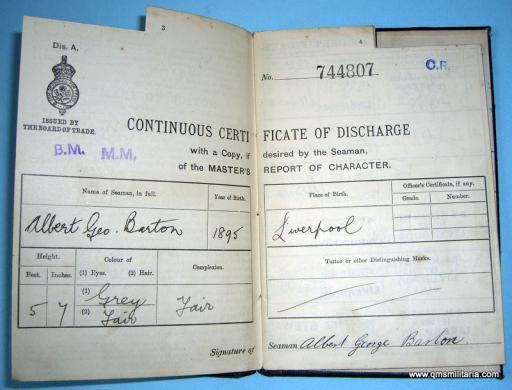 3
4
Dis. A.
No. 744807
C.R.
ISSUED BY
THE BOARD OF TRADE.
CONTINUOUS CERTIFICATE OF DISCHARGE
B.M. M.M.
with a Copy, if desired by the Seaman,
of the MASTER'S REPORT OF CHARACTER.
Name of Seaman, in full.
Year of Birth.
Albert Geo. Barton
1895
Height.
Colour of
Complexion.
Feet. Inches. (1) Eyes. (2) Hair.
5 7
(1) Grey
(2) Fair
Fair
Place of Birth.
Officer's Certificate, if any.
Grade. Number.
Liverpool
Tattoo or other Distinguishing Marks.
Signature of Seaman Albert George Barton
www.qmsmilitaria.com